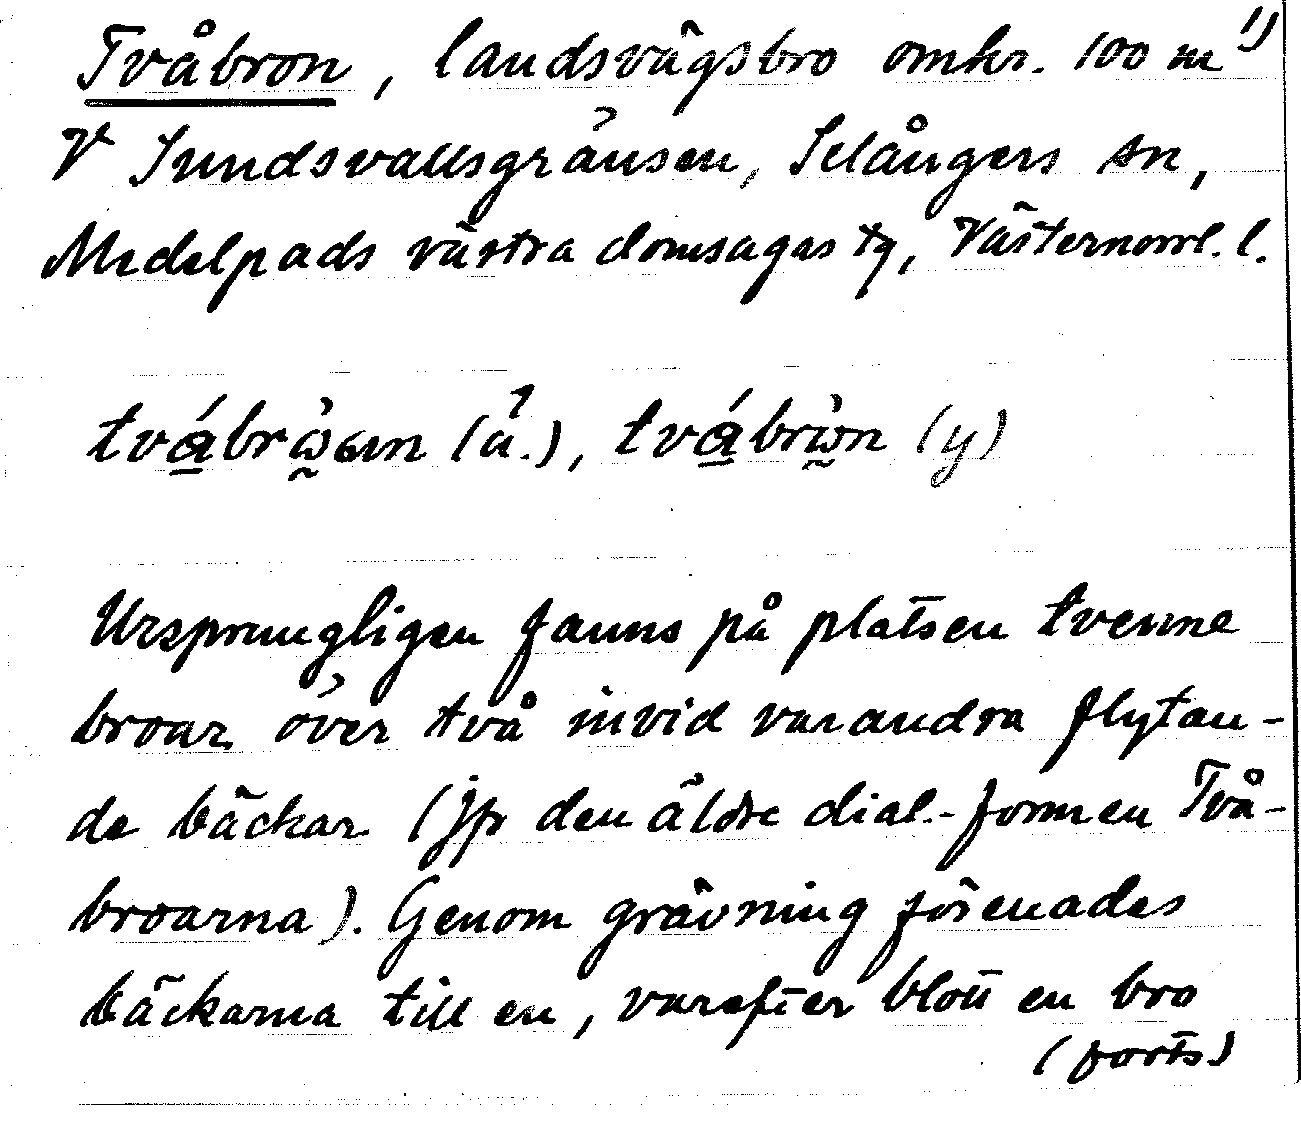 Tvåbron, landsvägsbro omkr. 100 m 1)
V Sundsvallsgränsen, Selångers sn,
Medelpads västra domsagas tg, Västernorrl. l.
(ä.), (y)
Ursprungligen fanns på platsen tvenne
broar över två invid varandra flytan-
de bäckar (jfr den äldre dial.-formen Två-
broarna). Genom grävning förenades
bäckarna till en, varefter blott en bro
(forts)